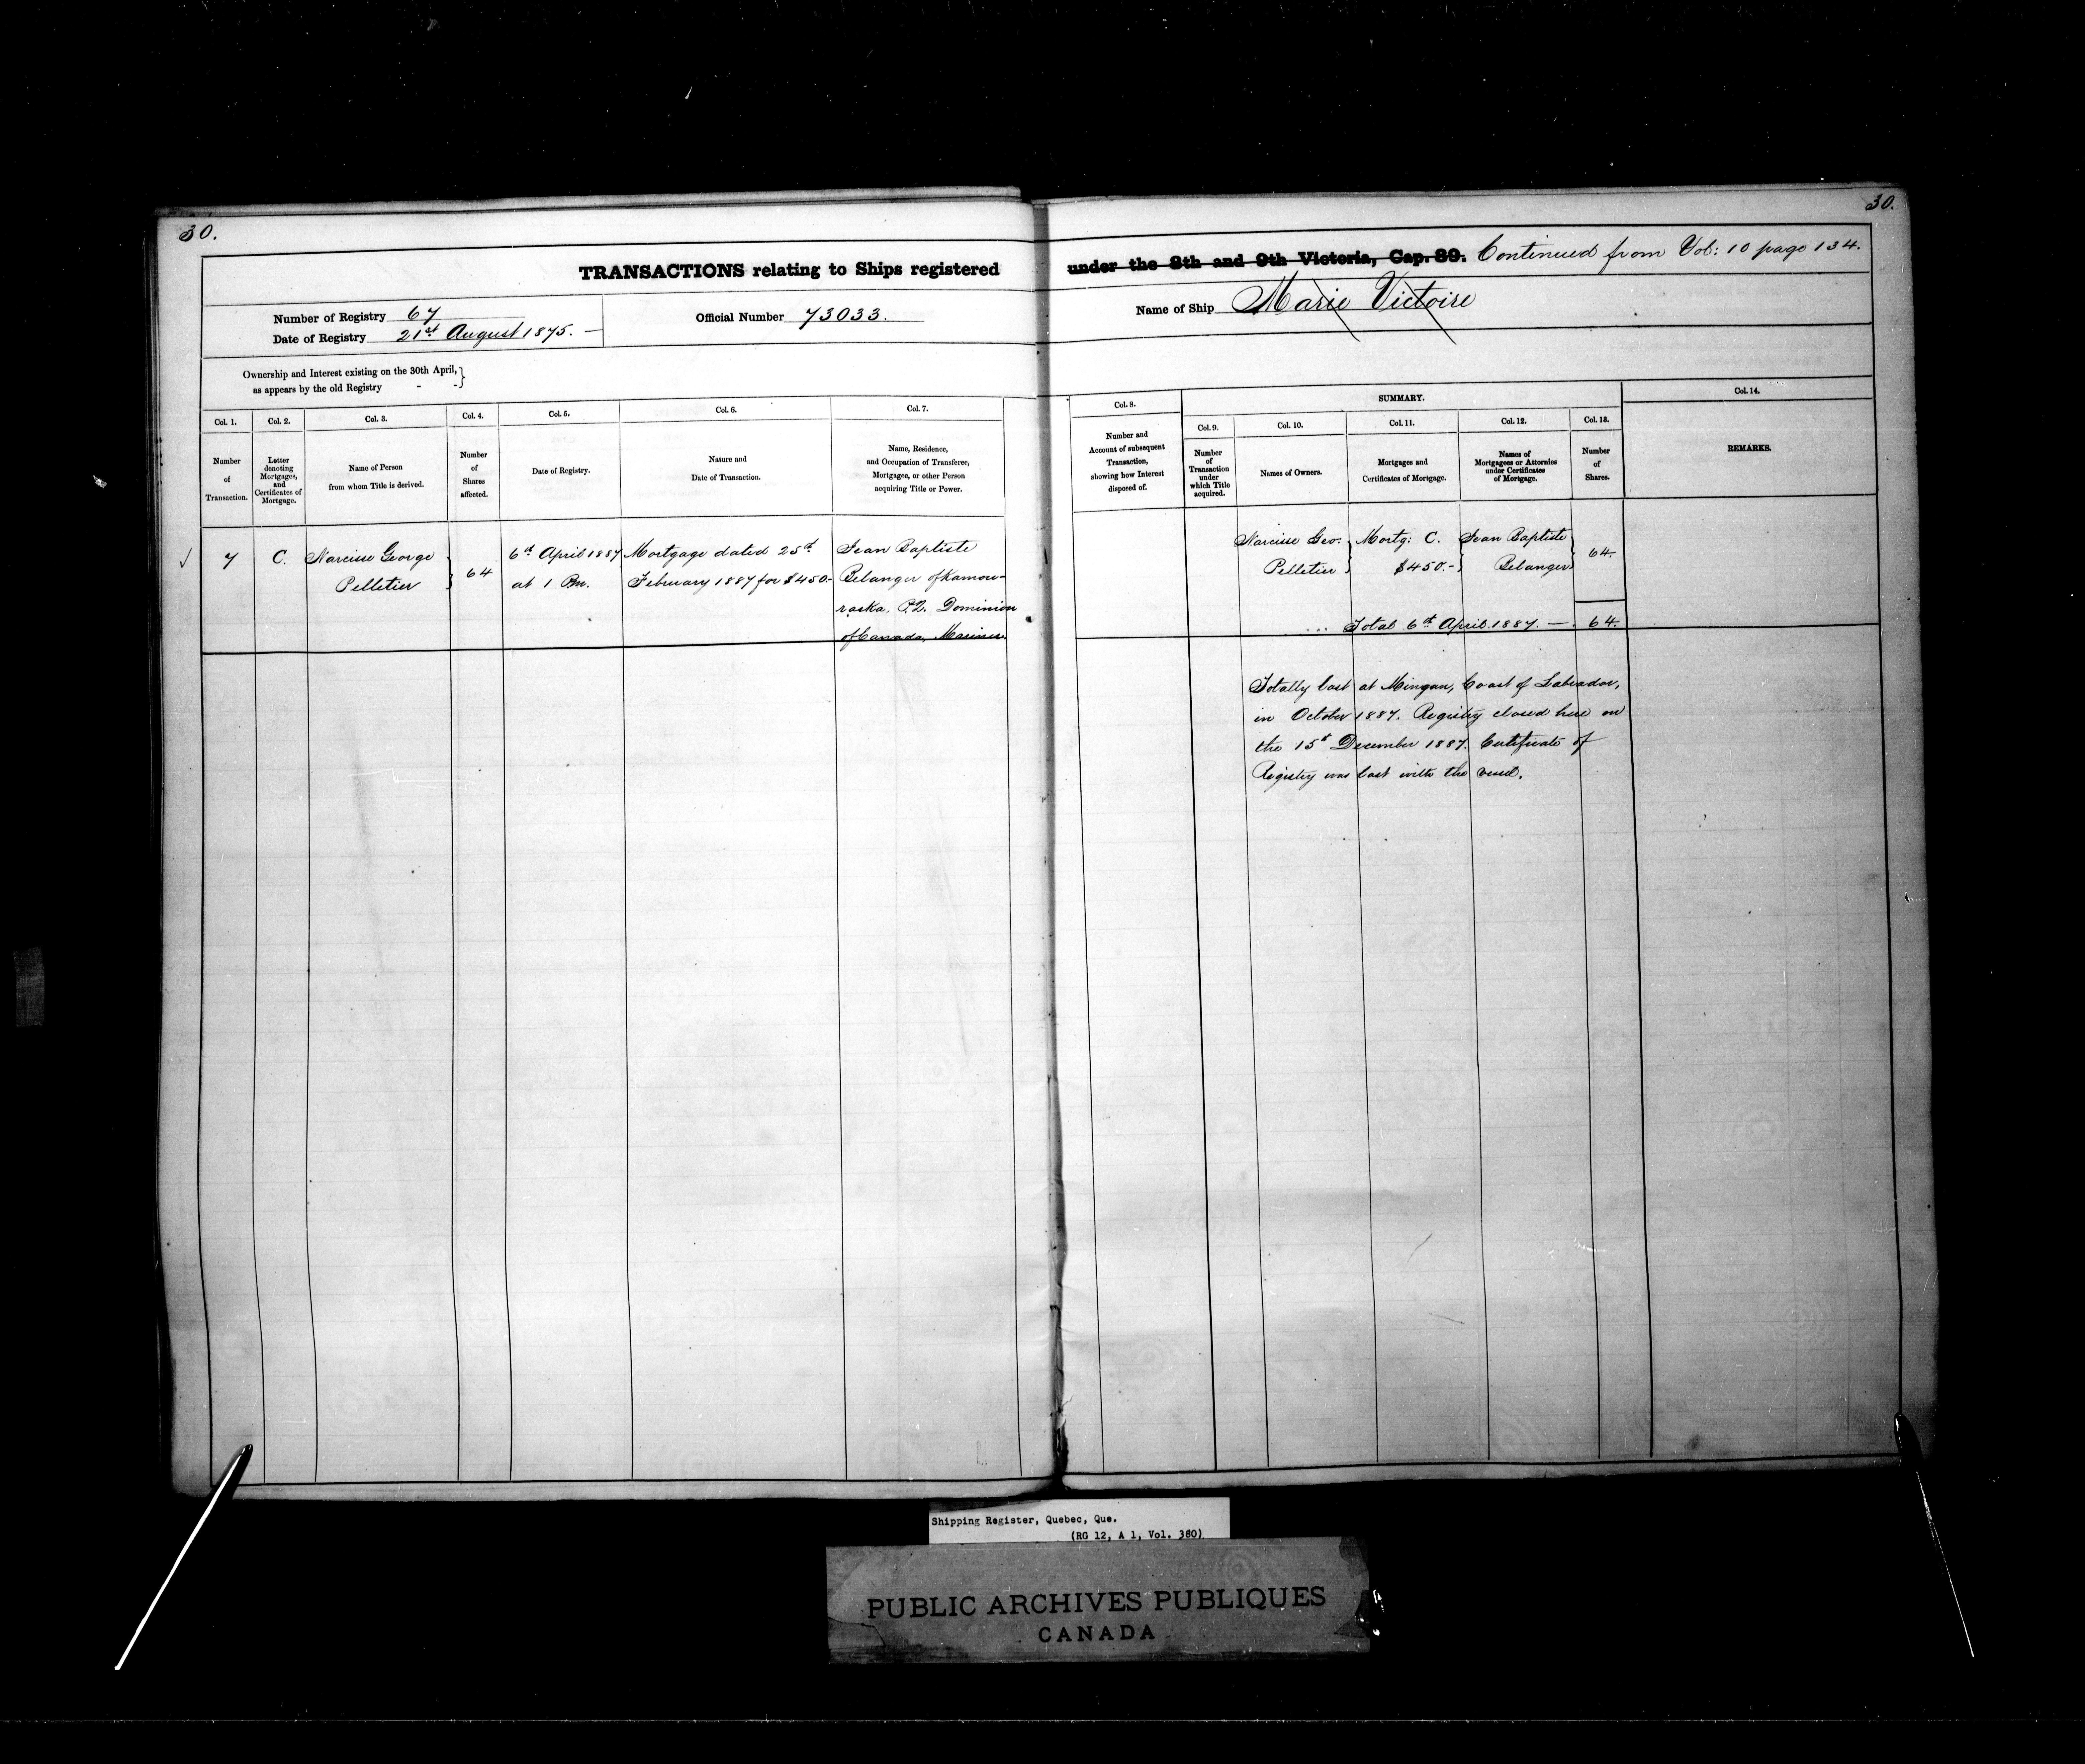 30.
30.
TRANSACTIONS relating to Ships registered under the 8th and 9th Victoria, Cap. 89. Continued from Vol: 10 page 134.
Number of Registry 67
Date of Registry 21st August 1875. —
Official Number 73033.
Name of Ship Marie Victoire
Ownership and Interest existing on the 30th April, }
as appears by the old Registry - -
Col. 1.
Number
of
Transaction.
Col. 2.
Letter
denoting
Mortgages,
and
Certificates of
Mortgage.
Col. 3.
Name of Person
from whom Title is derived.
Col. 4.
Number
of
Shares
affected.
Col. 5.
Date of Registry.
Col. 6.
Nature and
Date of Transaction.
Col. 7.
Name, Residence,
and Occupation of Transferee,
Mortgagee, or other Person
acquiring Title or Power.
Col. 8.
Number and
Account of subsequent
Transaction,
showing how Interest
disposed of.
SUMMARY.
Col. 9.
Number
of
Transaction
under
which Title
acquired.
Col. 10.
Names of Owners.
Col. 11.
Mortgages and
Certificates of Mortgage.
Col. 12.
Names of
Mortgagees or Attornies
under Certificates
of Mortgage.
Col. 13.
Number
of
Shares.
Col. 14.
REMARKS.
7
C.
Narcisse George
Pelletier
64
6th April 1887
at 1 Pm.
Mortgage dated 25th
February 1887 for $450-
Jean Baptiste
Belanger of Kamou-
raska, P.Q. Dominion
of Canada, Mariner.
Narcisse Geo.
Pelletier
Mortg: C.
$450.-
Jean Baptiste
Belanger
64.
Total 6th April 1887. — 64.
Totally lost at Mingan, Coast of Labrador,
in October 1887. Registry closed here on
the 15th December 1887. Certificate of
Registry was lost with the vessel.
Shipping Register, Quebec, Que.
(RG 12, A 1, Vol. 380)
PUBLIC ARCHIVES PUBLIQUES
CANADA